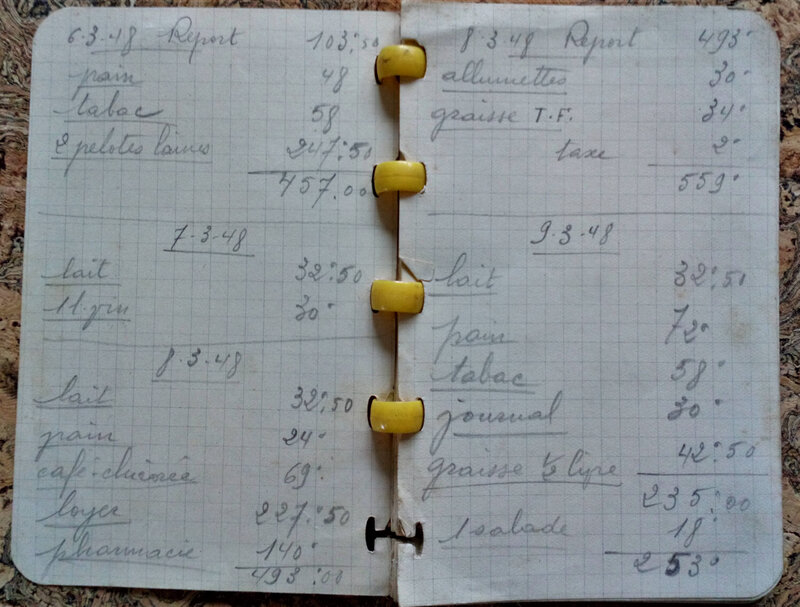 6.3.48 Report 103:50
pain 48
tabac 58
2 pelotes laines 247:50
457.00
7-3-48
lait 32:50
1 l. vin 30
8-3-48
lait 32:50
pain 24
café-chicorée 69
loyer 227:50
pharmacie 140
493:00
8.3.48 Report 493
allumettes 30
graisse T.F. 34
taxe 2
559
9.3-48
lait 32:50
pain 72
tabac 58
journal 30
graisse 42:50
235:00
1 salade 18
253